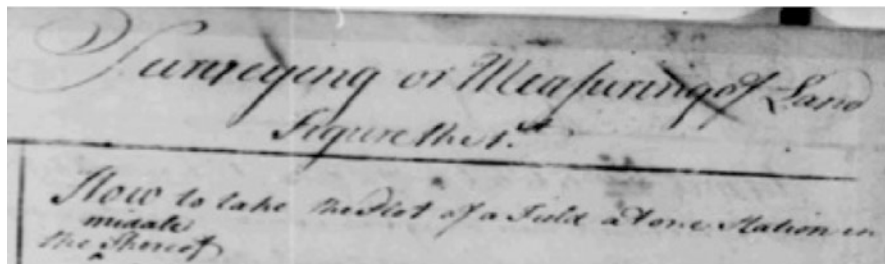 Surveying or Measuring of Land
Figure the 1.st
How to take the Plot of a Field at one Station in
midale
the ^ Thereof